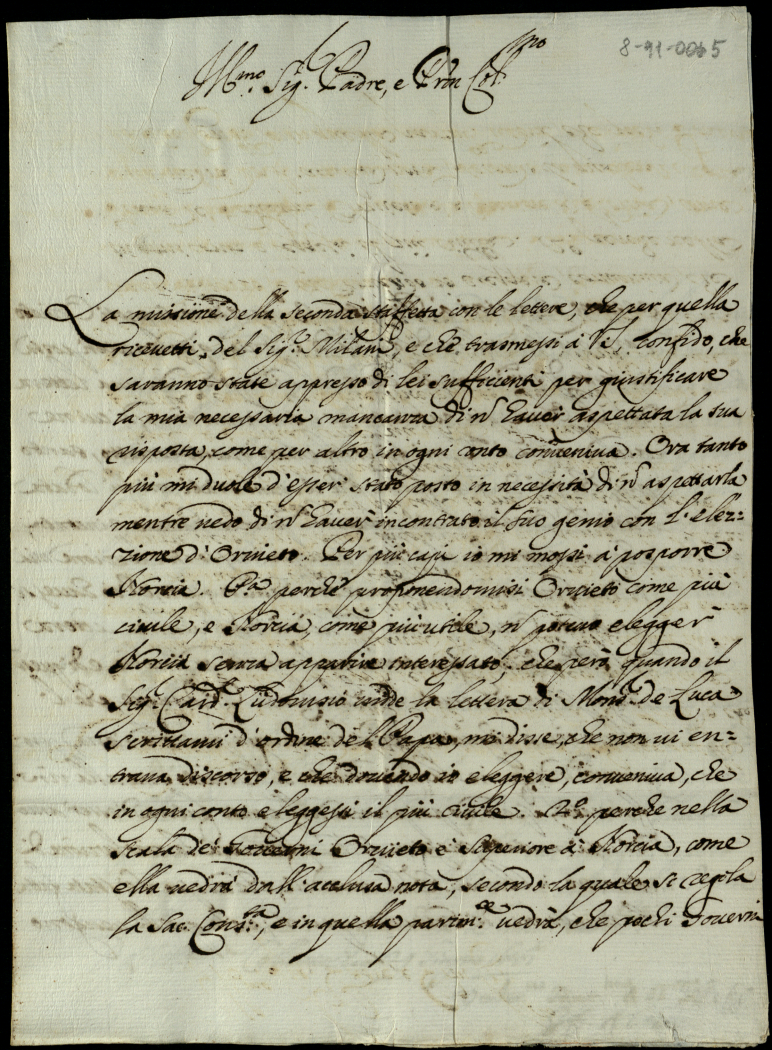 8-91-0065
Ill.mo Sig.r Padre, e Pron Col.mo
La missione della seconda staffetta con le lettere, che per quella
ricevetti del Sig.r Milani, e che trasmessi à VS, confido, che
saranno state appresso di lei sufficienti per giustificare
la mia necessaria mancanza di n̄ haver aspettata la sua
risposta, come per altro in ogni conto conveniva. Ora tanto
più mi duole d'esser stato posto in necessità di n̄ aspettarla
mentre vedo di n̄ haver incontrato il suo genio con l'ele=
zione d'Orvieto. Per più capi io mi mossi à posporre
Norcia. P.a perchè proponendomisi Orvieto come più
civile, e Norcia, come più utile, n̄ potevo elegger
Norcia senza apparire interessato, che però quando il
Sig.r Card. Ludovisio vidde la lettera di Mons.r de Luca
scrittami d'ordine del Papa, mi disse, che non vi en=
trava discorso, e che dovendo io eleggere, conveniva, che
in ogni conto eleggessi il più civile. 2.o perche nella
scala de' Governi Orvieto è superiore à Norcia, come
ella vedrà dall'acclusa nota, secondo la quale si regola
la Sac. Cons.ta, e in quella vedrà, che pochi Governi